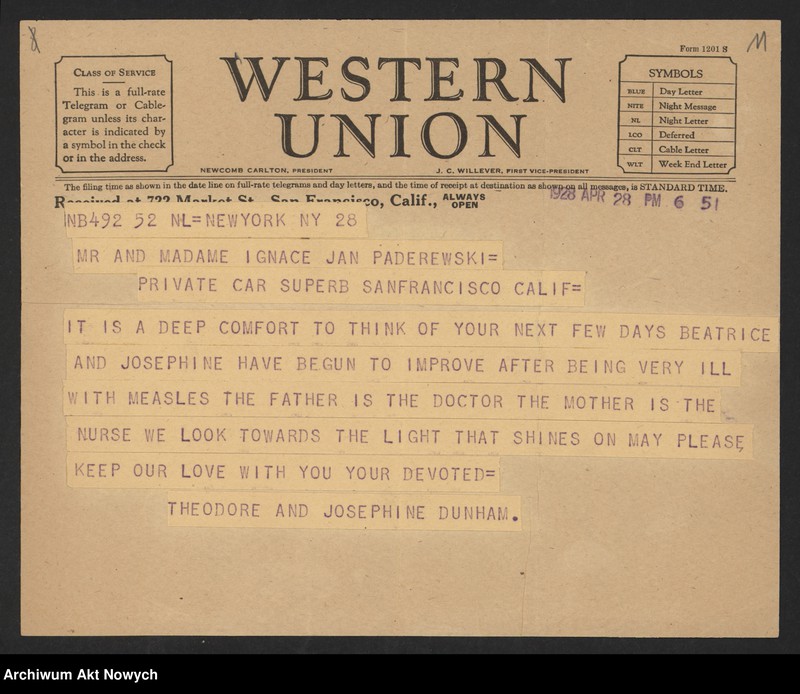 Form 1201 S
CLASS OF SERVICE
This is a full-rate
Telegram or Cable-
gram unless its char-
acter is indicated by
a symbol in the check
or in the address.
WESTERN
UNION
NEWCOMB CARLTON, PRESIDENT
J. C. WILLEVER, FIRST VICE-PRESIDENT
SYMBOLS
BLUE Day Letter
NITE Night Message
NL Night Letter
LCO Deferred
CLT Cable Letter
WLT Week End Letter
The filing time as shown in the date line on full-rate telegrams and day letters, and the time of receipt at destination as shown on all messages, is STANDARD TIME.
Received at 722 Market St., San Francisco, Calif., ALWAYS OPEN
1928 APR 28 PM 6 51
NB492 52 NL=NEWYORK NY 28
MR AND MADAME IGNACE JAN PADEREWSKI=
PRIVATE CAR SUPERB SANFRANCISCO CALIF=
IT IS A DEEP COMFORT TO THINK OF YOUR NEXT FEW DAYS BEATRICE
AND JOSEPHINE HAVE BEGUN TO IMPROVE AFTER BEING VERY ILL
WITH MEASLES THE FATHER IS THE DOCTOR THE MOTHER IS THE
NURSE WE LOOK TOWARDS THE LIGHT THAT SHINES ON MAY PLEASE,
KEEP OUR LOVE WITH YOU YOUR DEVOTED=
THEODORE AND JOSEPHINE DUNHAM.
Archiwum Akt Nowych